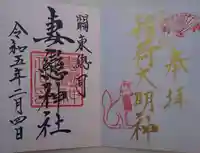 奉拝
稲荷大明神
關東惣司
妻戀神社
令和五年二月四日